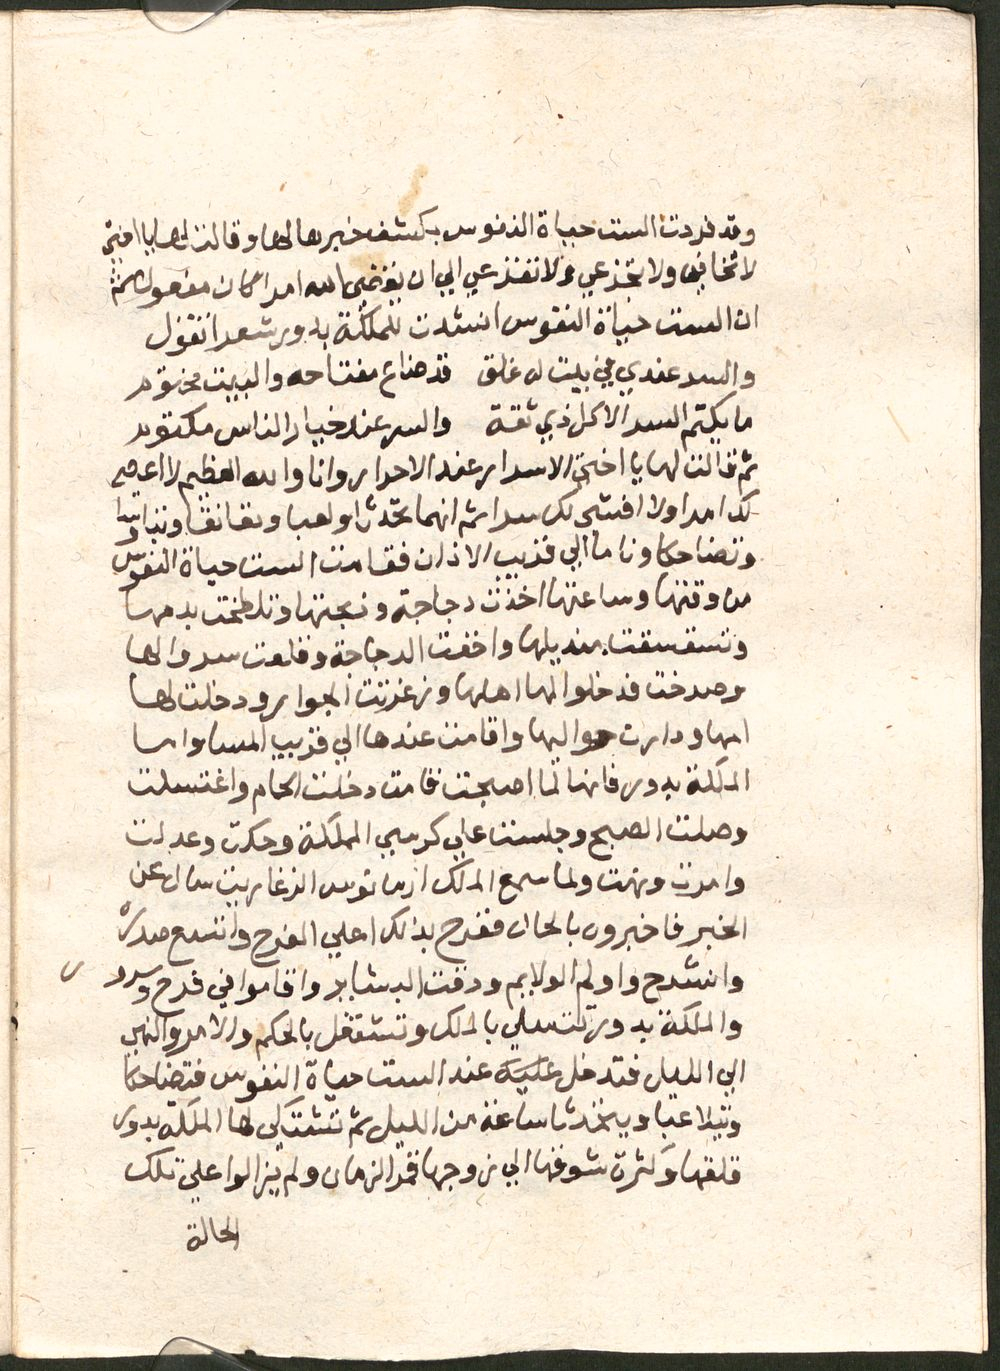 وقد فردت الست حياة النفوس بكشف خبرها لها وقالت لها يا اختي
لا تخافي ولا تجزعي ولا تفزعي الي ان يقضي الله امرا كان مفعولا ثم
ان الست حياة النفوس انشدت للملكة بدور شعرا تقول
والسر عندي في بيت له غلق قد ضاع مفتاحه والبيت مختوم
ما يكتم السر الا كل ذي ثقة والسر عند خيار الناس مكتوم
ثم قالت لها يا اختي الاسرار عند الاحرار وانا والله العظيم لا اعصي
لك امرا ولا افشي لك سرا ثم انهما تحدثا ولعبا وتعانقا وتباوسا
وتضاحكا وناما الي قريب الاذان فقامت الست حياة النفوس
من وقتها وساعتها اخذت دجاجة وذبحتها وتلطخت بدمها
وتسقسقت بمنديلها واخفت الدجاجة وقلعت سروالها
وصرخت فدخلوا لها اهلها وزغرتت الجوار ودخلت لها
امها ودارت حواليها واقامت عندها الي قريب المسا واما
الملكة بدور فانها لما اصبحت قامت دخلت الحمام واغتسلت
وصلت الصبح وجلست علي كرسي المملكة وحكت وعدلت
وامرت ونهت ولما سمع الملك ارمانوس الزغاريت سال عن
الخبر فاخبروه بالحال ففرح بذلك اعلي الفرح واتسع صدره
وانشرح واولم الولايم ودقت البشاير واقاموا في فرح وسرور
والملكة بدور تتسلي بالملك وتشتغل بالحكم والامر والنهي
الي الليل فتدخل عليه عند الست حياة النفوس فتضاحكا
وتلاعبا ويتحدثا ساعة من الليل ثم تشتكي لها الملكة بدور
قلقها وكثرة شوقها الي زوجها قمر الزمان ولم يزالوا علي تلك
الحالة